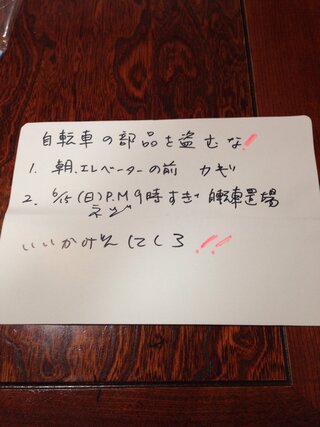 自転車の部品を盗むな!
1. 朝、エレベーターの前 カギ
2. 6/15(日)P.M9時すぎ 自転車置場
ネジ
いいかげんにしろ!!